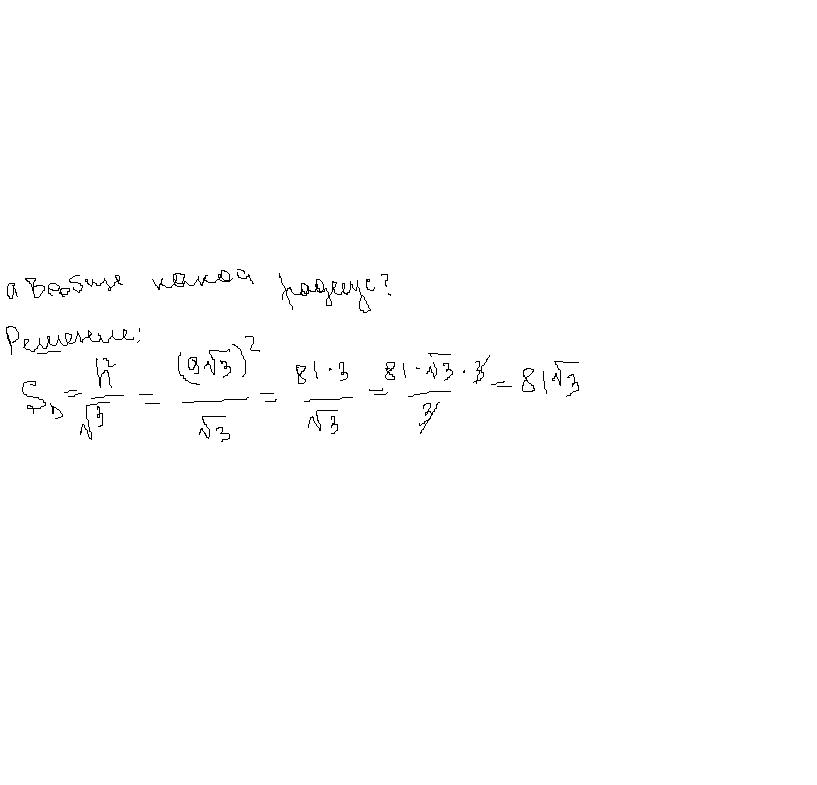 а вообще какой радиус?
Решение:
S = h² / √3 = (9√3)² / √3 = 81 · 3 / √3 = 81 · √3 · 3 / 3 = 81√3